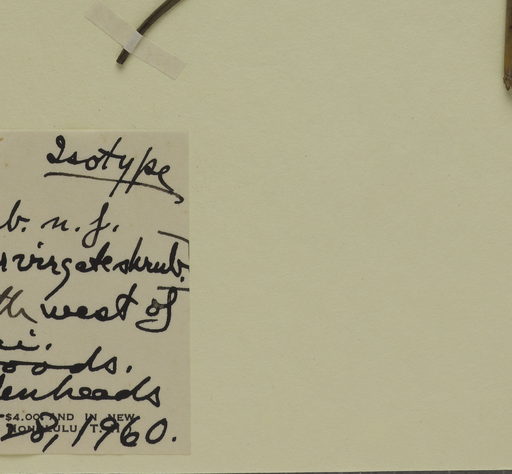 Isotype
b. n. f.
r virgate shrub.
th west of
ei.
oods.
denheads
$4.00 AND IN NEW
HONOLULU, T. H.
28, 1960.